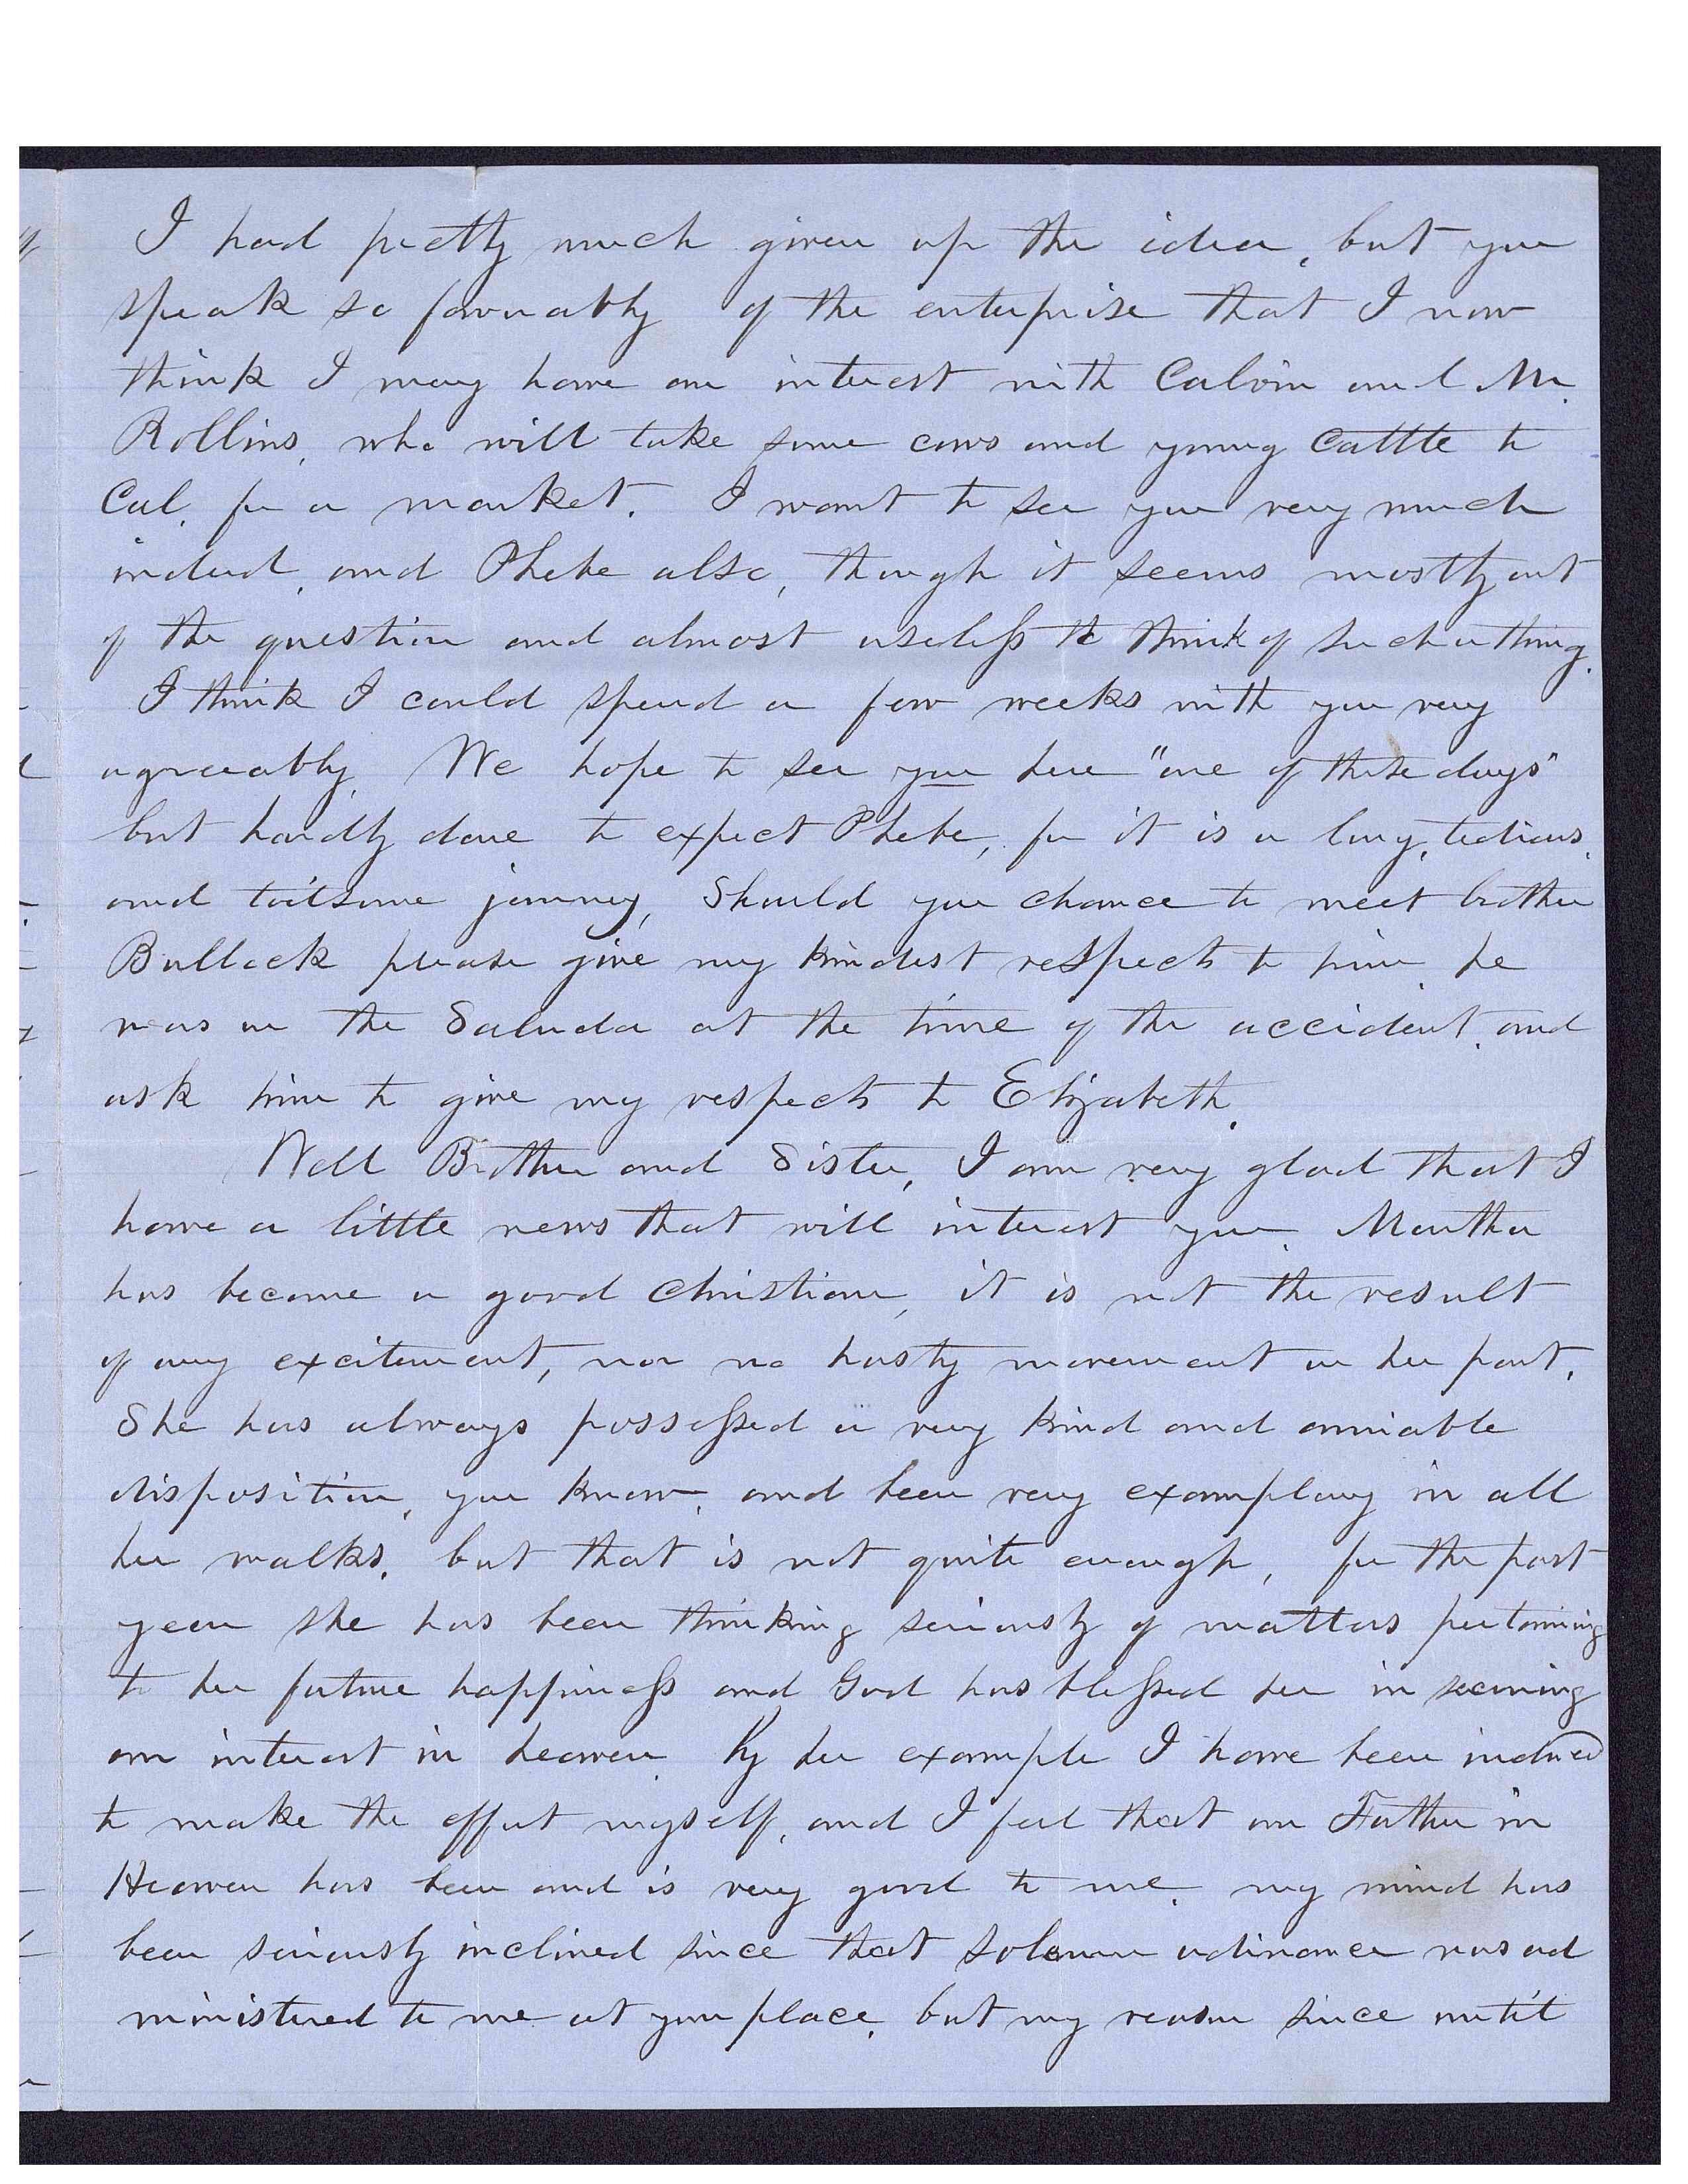 I had pretty much given up the idea, but you
speak so favorably of the enterprise that I now
think I may have an interest with Calvin and Mr.
Rollins, who will take some cows and young Cattle to
Cal. for a market. I want to see you very much
indeed, and Phebe also, though it seems mostly out
of the question and almost useless to think of such a thing.
I think I could spend a few weeks with you very
agreeably. We hope to see you here "one of these days"
but hardly dare to expect Phebe, for it is a long, tedious,
and toilsome journey, Should you chance to meet brother
Bullock please give my kindest respects to him, he
was on the Saluda at the time of the accident, and
ask him to give my respects to Elizabeth.
Well Brother and Sister, I am very glad that I
have a little news that will interest you. Martha
has become a good Christian, it is not the result
of any excitement, nor no hasty movement on her part.
She has always possessed a very kind and amiable
disposition, you know, and been very examplary in all
her walks, but that is not quite enough, for the past
year she has been thinking seriously of matters pertaining
to her future happiness and God has blessed her in securing
an interest in heaven. By her example I have been induced
to make the effort myself, and I feel that our Father in
Heaven has been and is very good to me, my mind has
been seriously inclined since that solemn ordinance was ad
ministered to me at your place, but my reason since until